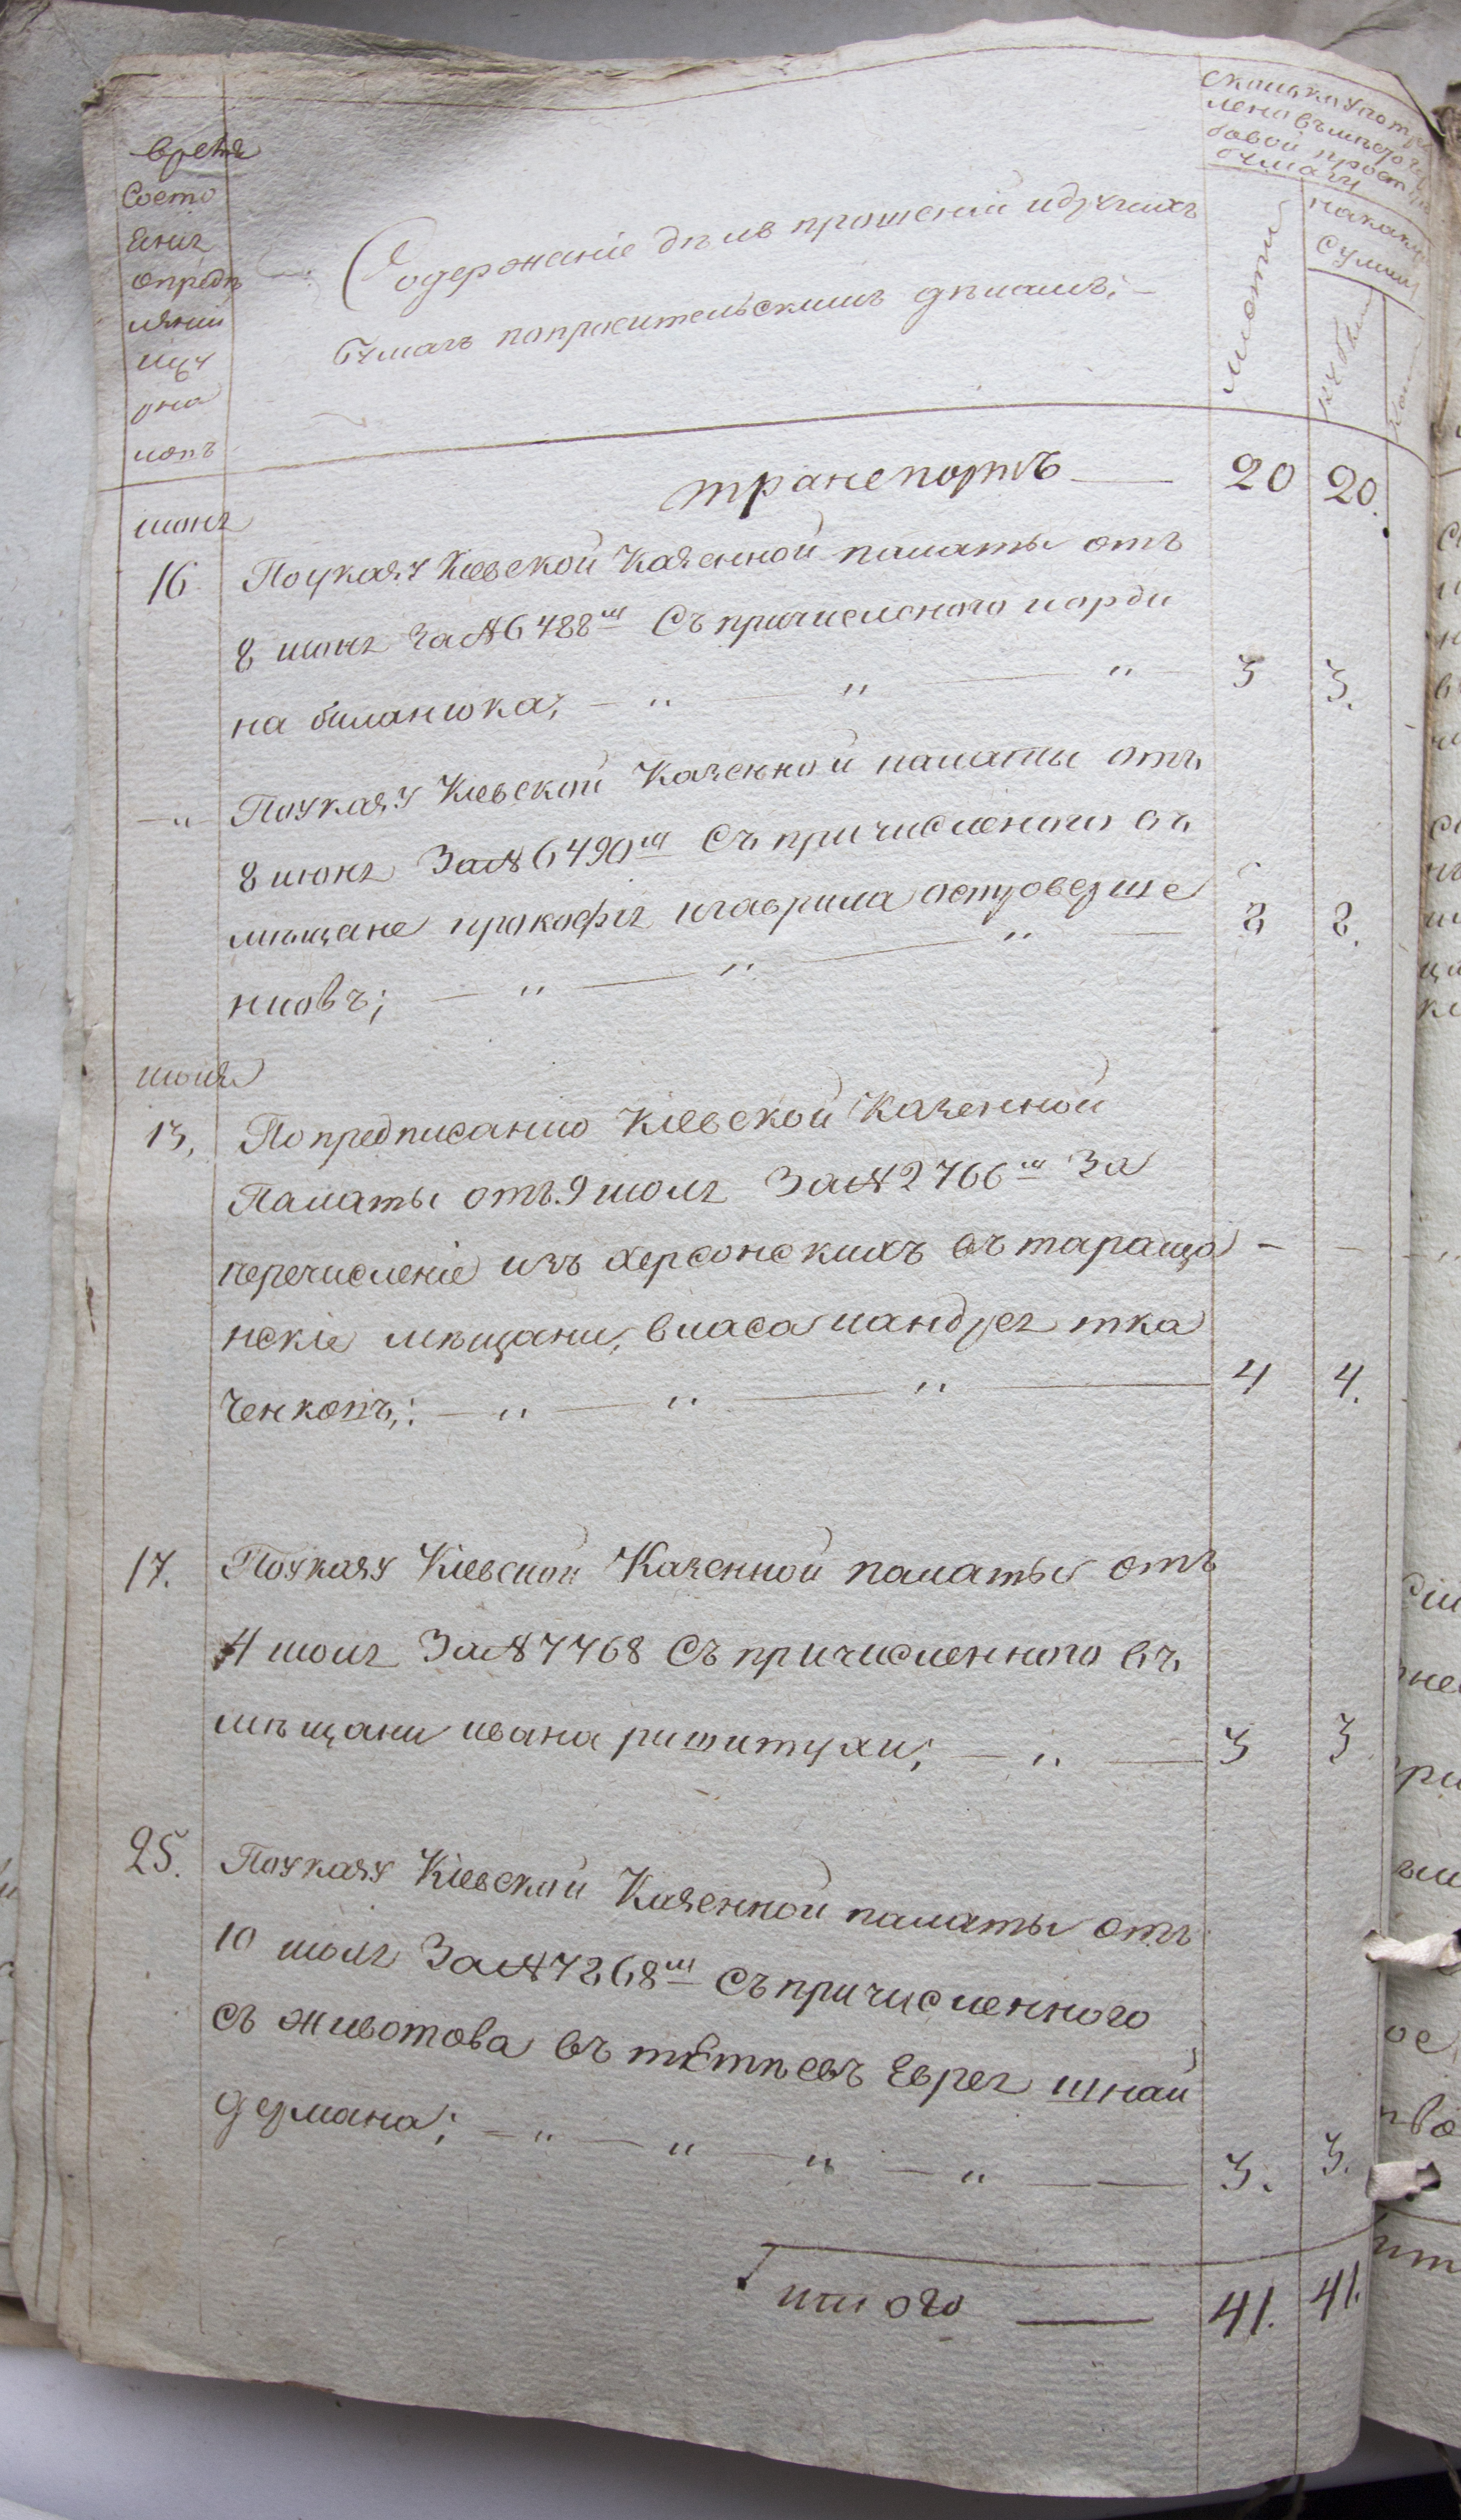 время
состо
яния
опредѣ
лений
Содержание дѣлъ прошений идущихъ
бумагъ попросительскимъ дѣламъ;
Сколько употре
лено вместо гер
бовой прост
бумаги
листи
на какую
сумму
рубли
коп
транспортъ 20 20.
июня
16 Поуказу Киевской Казенной палаты отъ
8 июня За №6488мъ Съ причисленого иорди
на биланюка; 3 3.
Поуказу Киевской Казенной палаты отъ
8 июня За № 6490мъ Съ причисленого въ
мещане прокофия игаврила островерше
нковъ; 8 8.
июля
13, Попредписанию Киевской Казенной
Палаты отъ 9 июля За № 2766мъ За
перечисление изъ херсонскихъ въ тараща
нские мещани, власа иандрея тка
ченковъ; 4 4.
17. Поуказу Киевской Казенной палаты отъ
4 июля За № 7768 Съ причисленного въ
мещани ивана ришитухи; 3 3
25. Поуказу Киевской Казенной палаты отъ
10 июля За № 7268мъ Съ причисленного
съ животова въ тѣтиевъ Еврея шнай
дермана; 3. 3.
итого 41. 41.